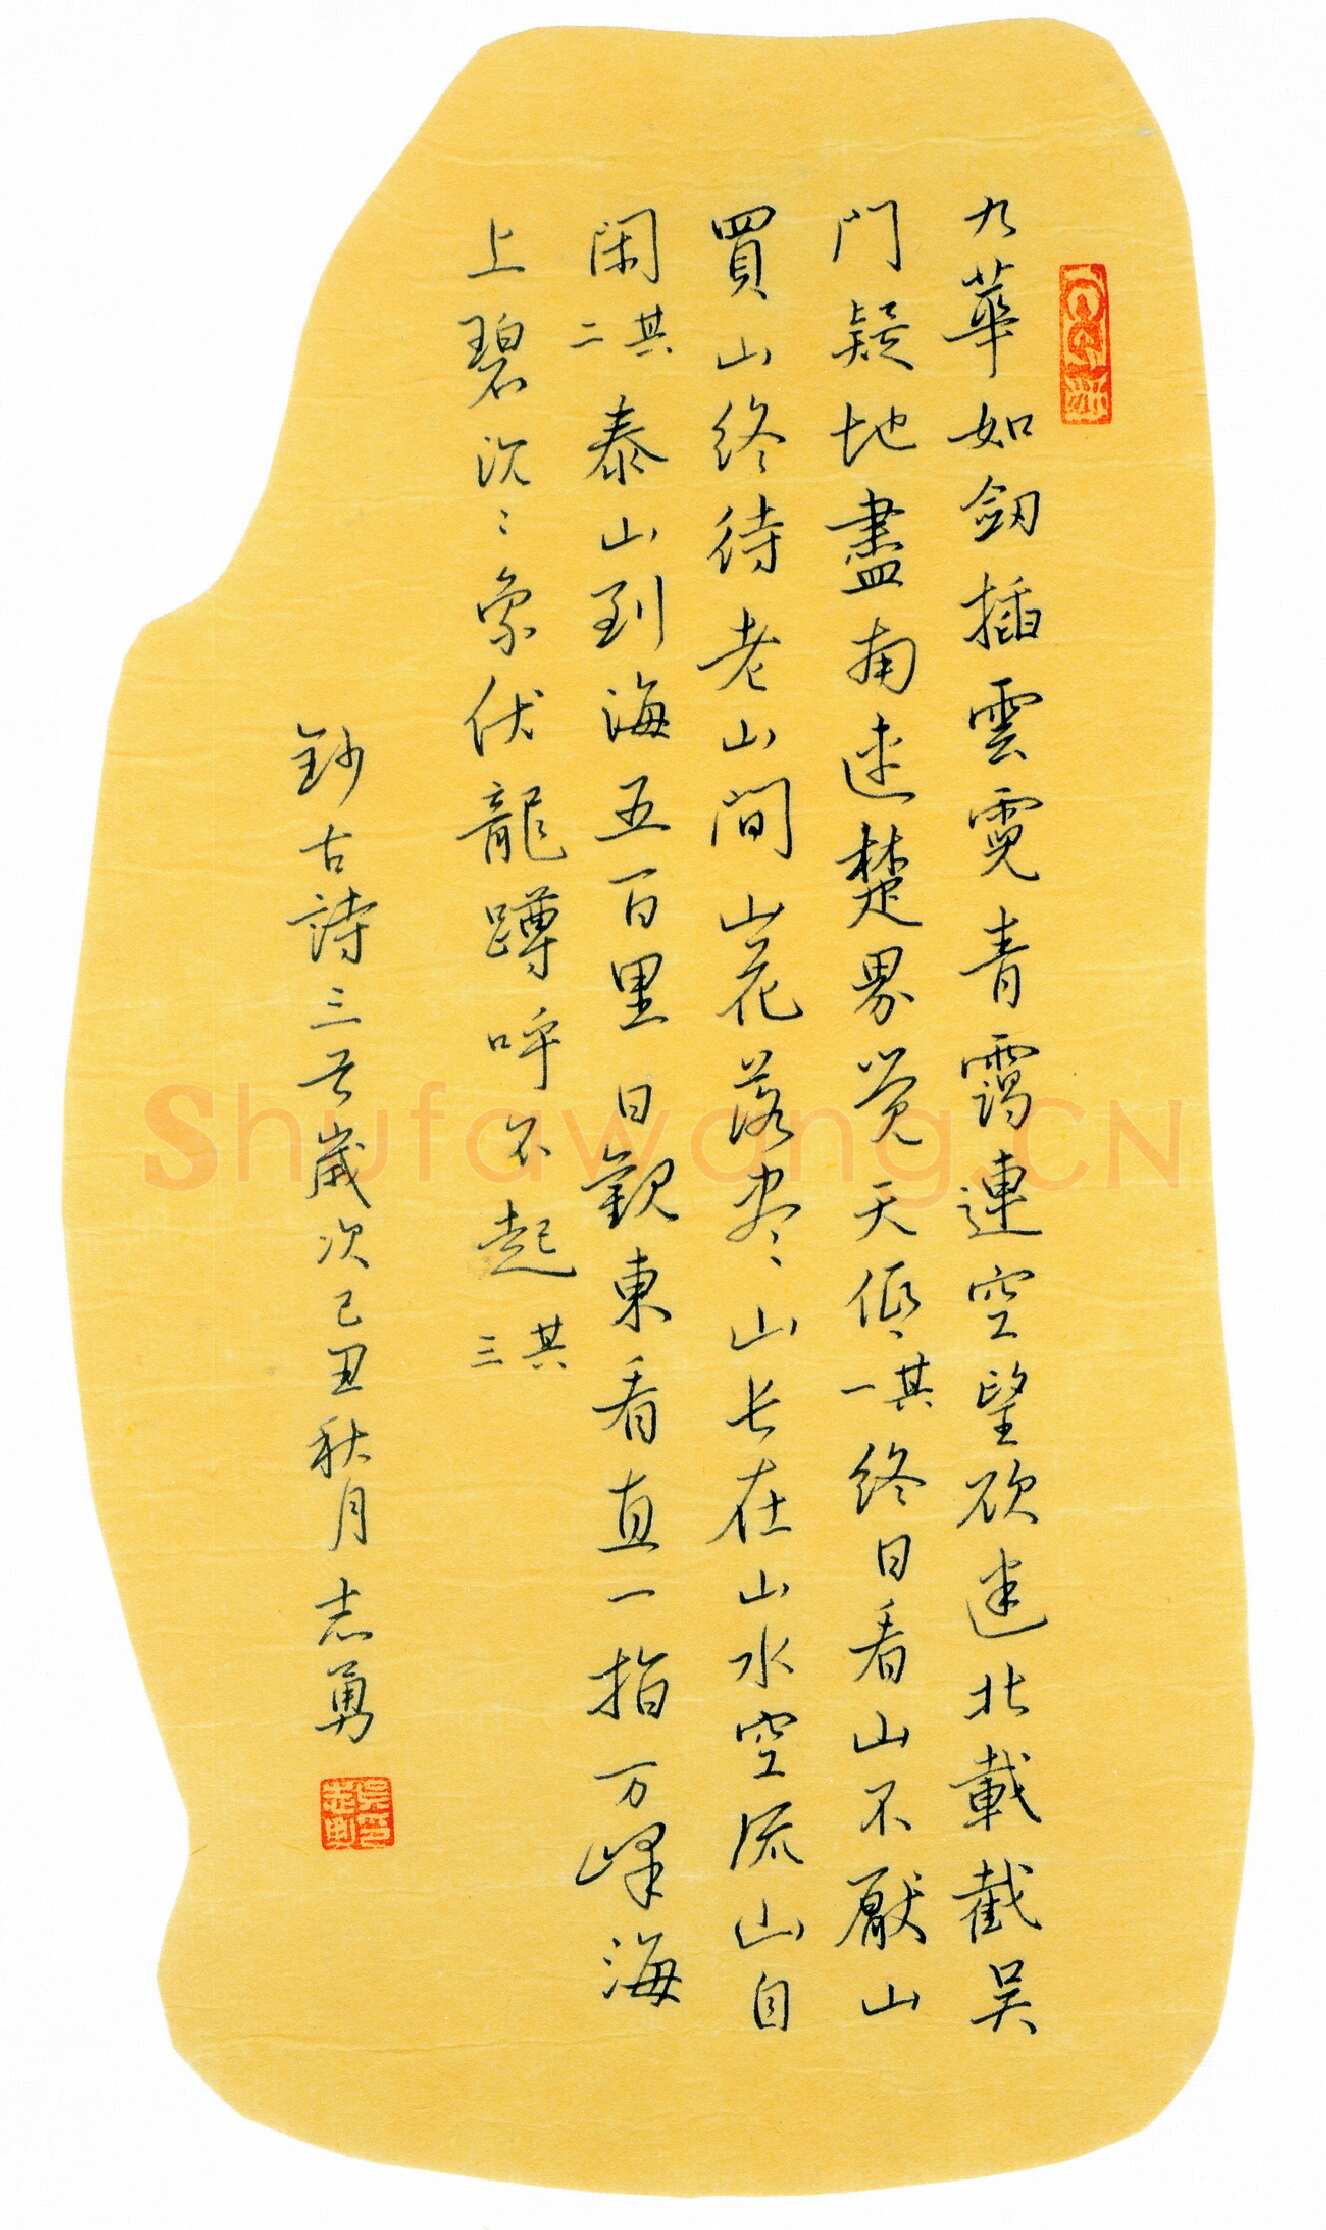 九華如劒插雲霓青靄連空望欲迷北載截吳
門疑地盡南連楚界觉天低其一終日看山不厭山
買山終待老山間山花落尽山长在山水空流山自
閑其二泰山到海五百里日觀東看直一指万峰海
上碧沉〻象伏龍蹲呼不起其三
鈔古詩三首歲次己丑秋月志勇
吳志勇印
Shufawang.CN